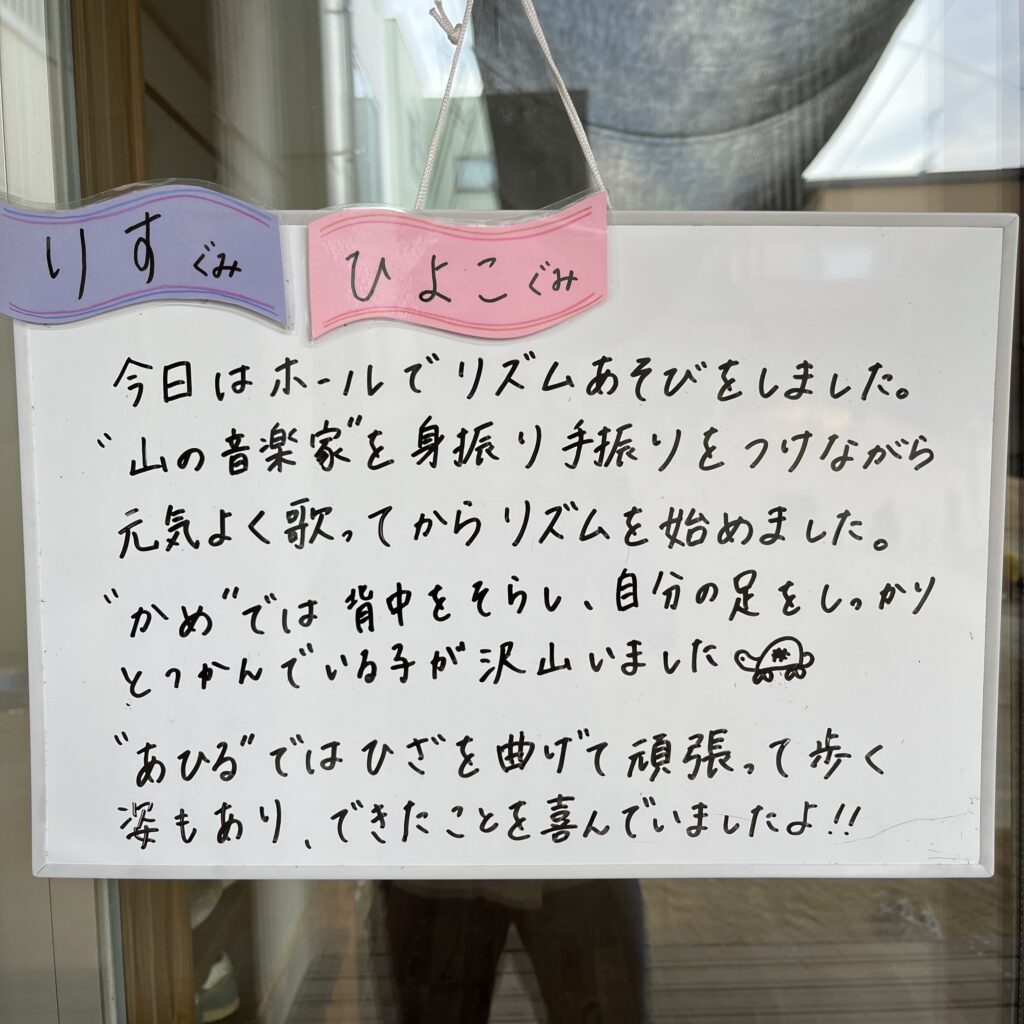 りすぐみ
ひよこぐみ
今日はホールでリズムあそびをしました。
"山の音楽家"を身振り手振りをつけながら
元気よく歌ってからリズムを始めました。
"かめ"では背中をそらし、自分の足をしっかり
とつかんでいる子が沢山いました
"あひる"ではひざを曲げて頑張って歩く
姿もあり、できたことを喜んでいましたよ!!